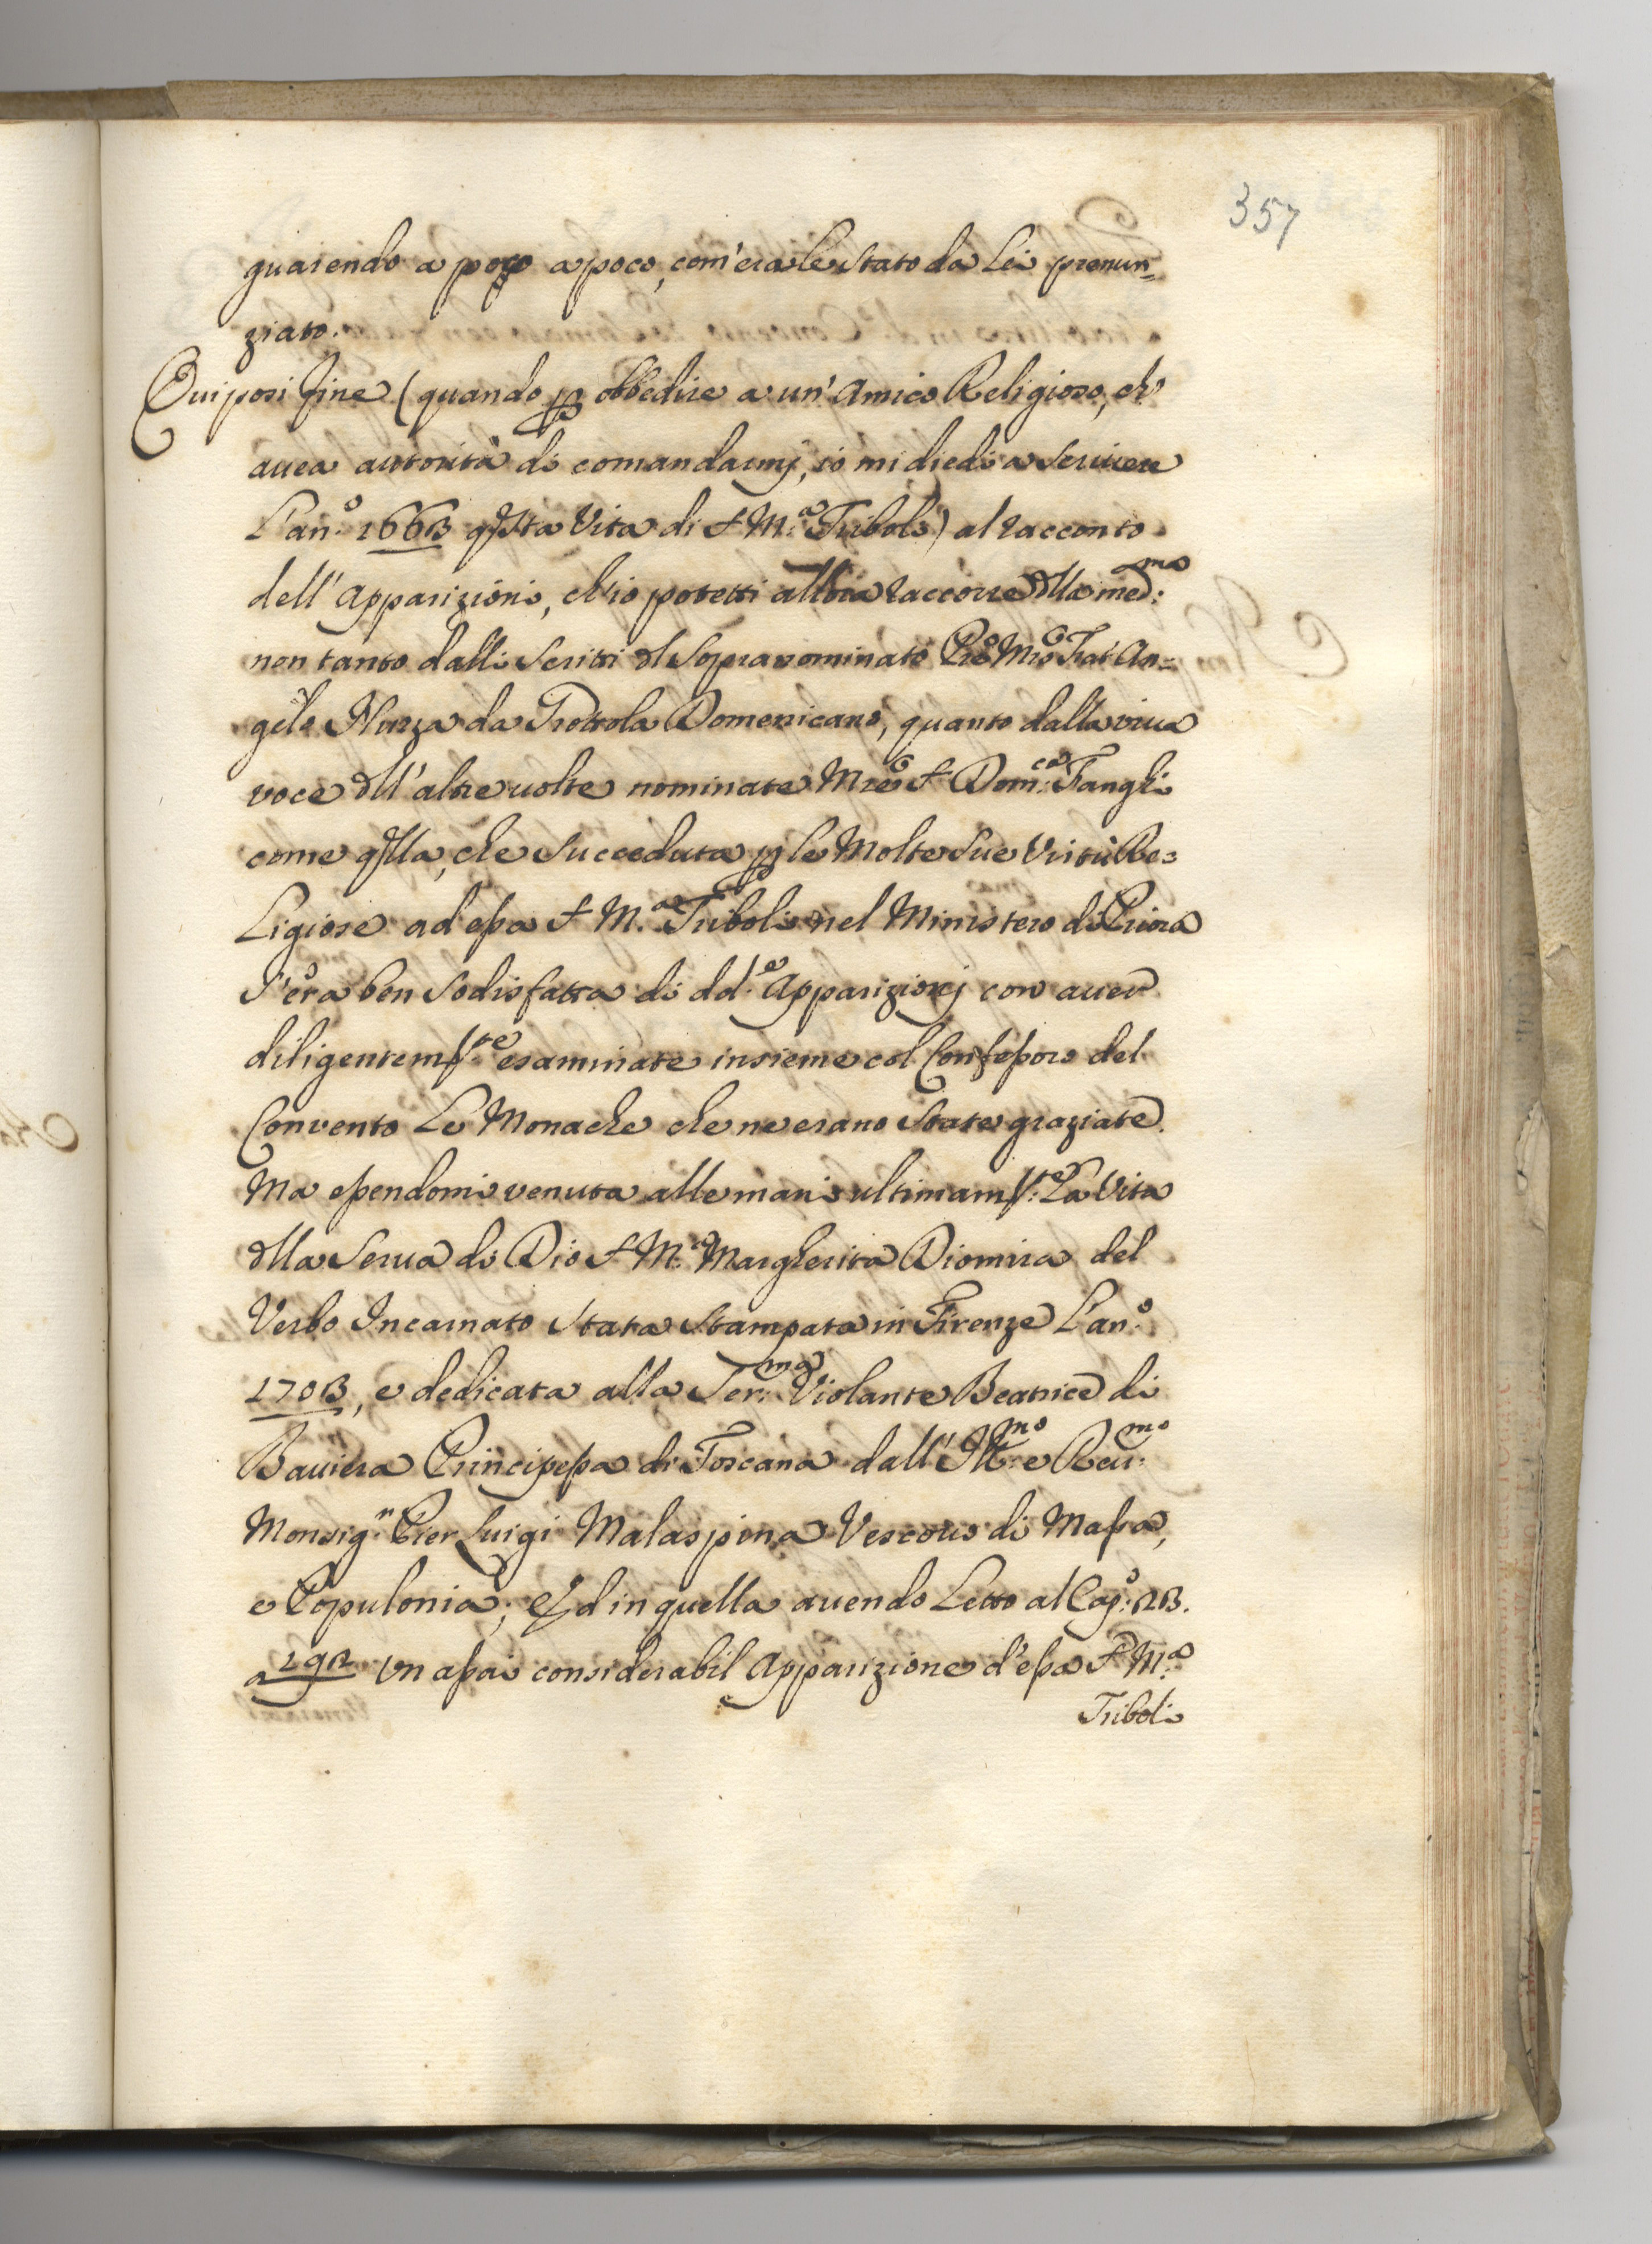 357
guarendo a poco a poco, com'erale stato da Lei prenun=
ziato.
Qui posi fine (quando p obbedire a un' Amico Religioso, ch'
avea autorità di comandarmj, io mi diedi a scrivere
L'an:º 1663 qsta Vita di S. M.ª Triboli) al racconto
dell' Apparizioni, ch'io potetti allora raccorre dlla med:ma
non tanto dalli scritti dl sopranominato Pre Mro Frat' An=
gelo da Trottola Domenicano, quanto dalla viva
voce dll' altre volte nominate Mre S. Dom:ca Fanghi
come qlla, che succeduta p le Molte sue Virtù Re=
Ligiose ad essa S. M.ª Triboli nel Ministero di Priora
s'era ben sodisfatta di dd:e Apparizionj con aver
diligentem:te esaminate insieme col Confessore del
Convento Le Monache che ne erano state graziate.
Ma essendomi venuta alle mani ultimam:te La Vita
dlla Serva di Dio S. M.ª Margherita Diomira del
Verbo Incarnato stata stampata in Firenze L'an:º
1703, e dedicata alla Ser:ma Violante Beatrice di
Baviera Principessa di Toscana dall' Ill:mo e Rev:mo
Monsig:r Pier Luigi Malaspina Vescovo di Massa,
e Populonia; Ed in quella avendo Letto al Cap:º 23.
a 192 un assai considerabil Apparizione d'essa S. M.ª
Triboli